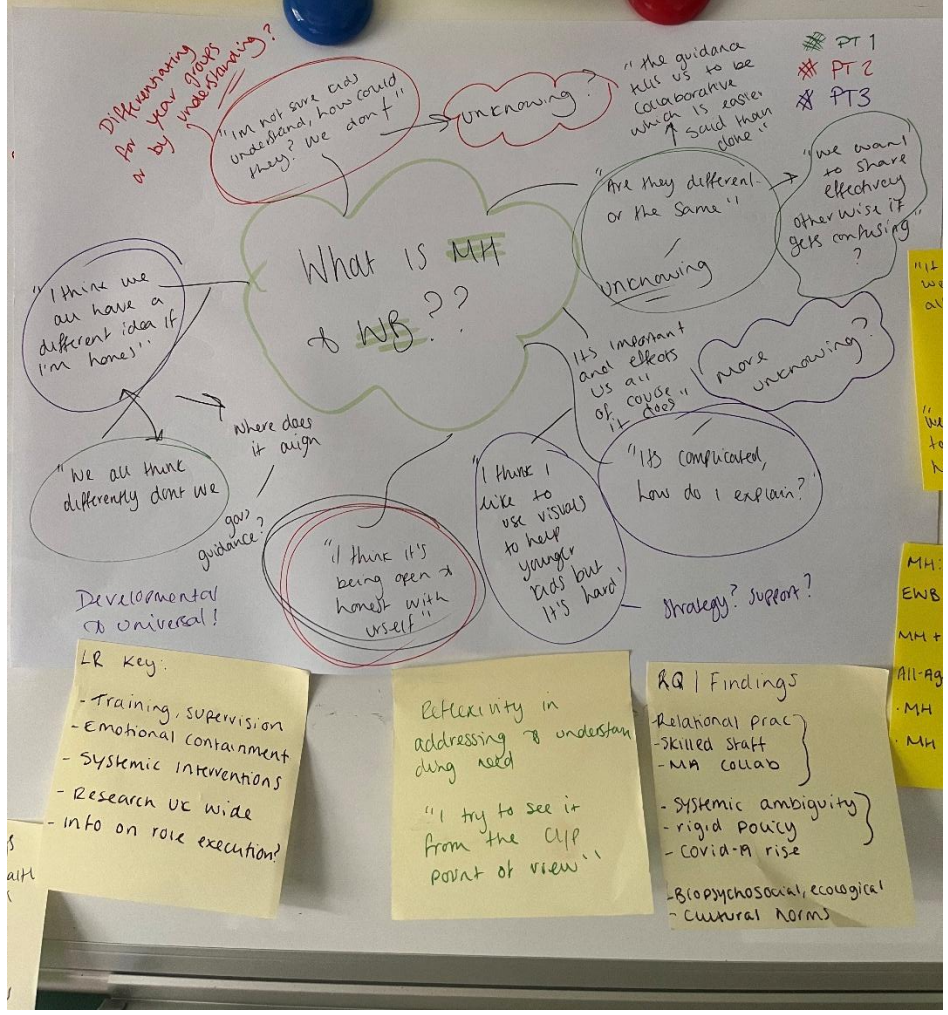 Differentiating
for year groups
or by understanding?
"I'm not sure kids
understand, how could
they? We don't"
unknowing?
"the guidance
tells us to be
collaborative
which is easier
said than
done"
PT 1
PT 2
PT3
What is MH
& WB??
"Are they different
or the same"
unknowing
"we want
to share
effectively
otherwise it
gets confusing"
?
"I think we
all have a
different idea if
I'm honest"
"We all think
differently dont we
where does
it align
gov
guidance?
Its important
and effects
us all
of course
it does"
more
unknowing?
"Its complicated,
how do I explain?"
"I think I
like to
use visuals
to help
younger
kids but
it's hard"
strategy? support?
"I think it's
being open &
honest with
urself"
Developmental
& universal!
LR Key:
- Training, supervision
- Emotional containment
- Systemic interventions
- Research UK wide
- Info on role execution?
Reflexivity in
addressing & understan
ding need
"I try to see it
from the c/p
point of view"
RQ1 Findings
- Relational prac
- Skilled staff
- MA collab
- systemic ambiguity
- rigid policy
- Covid-19 rise
- Biopsychosocial, ecological
- Cultural norms
MH:
EWB
MH +
All-Ag
· MH
· MH